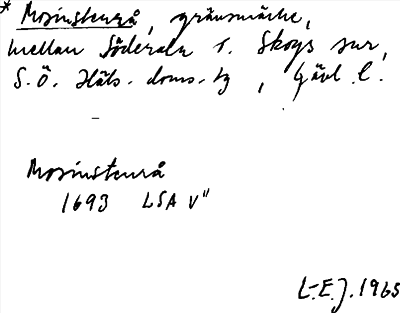 * Mosinstenrå, gränsmärke,
mellan Söderala o. Skogs snr,
S.Ö. Häls. doms.-tg, Gävl. l.
Mosinstenrå
1693 LSA V"
L-E.J. 1965